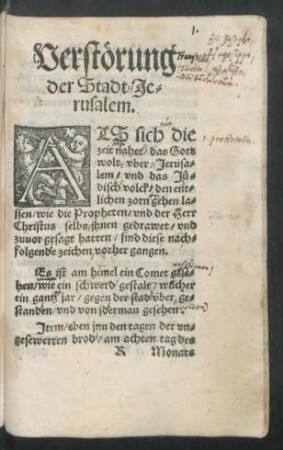 1.
Verstörung
der Stadt Je-
rusalem.
ALS sich die
zeit nahet/ das Gott
wolt/ vber/ Jerusa-
lem/ vnd das Jü-
disch volck/ den ent-
lichen zorn gehen las-
sen/ wie die Propheten/ vnd der Herr
Christus selbs/ jhnen gedrawet/ vnd
zuuor gesagt hatten/ sind diese nach-
folgende zeichen vorher gangen.
Es ist am himel ein Comet gese-
hen/ wie ein schwerd gestalt/ wilcher
ein gantz jar/ gegen der stad vber/ ge-
standen/ vnd von jderman gesehen.
Item/ eben jnn den tagen der vn-
gesewerten brod/ am achten tag des
R Monats